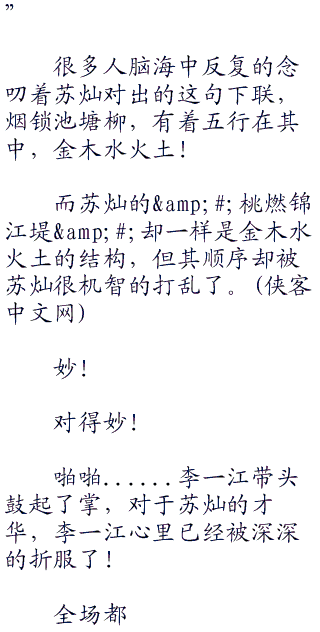 ”
很多人脑海中反复的念
叨着苏灿对出的这句下联，
烟锁池塘柳，有着五行在其
中，金木水火土！
而苏灿的&amp;#;桃燃锦
江堤&amp;#;却一样是金木水
火土的结构，但其顺序却被
苏灿很机智的打乱了。(侠客
中文网)
妙！
对得妙！
啪啪......李一江带头
鼓起了掌，对于苏灿的才
华，李一江心里已经被深深
的折服了！
全场都